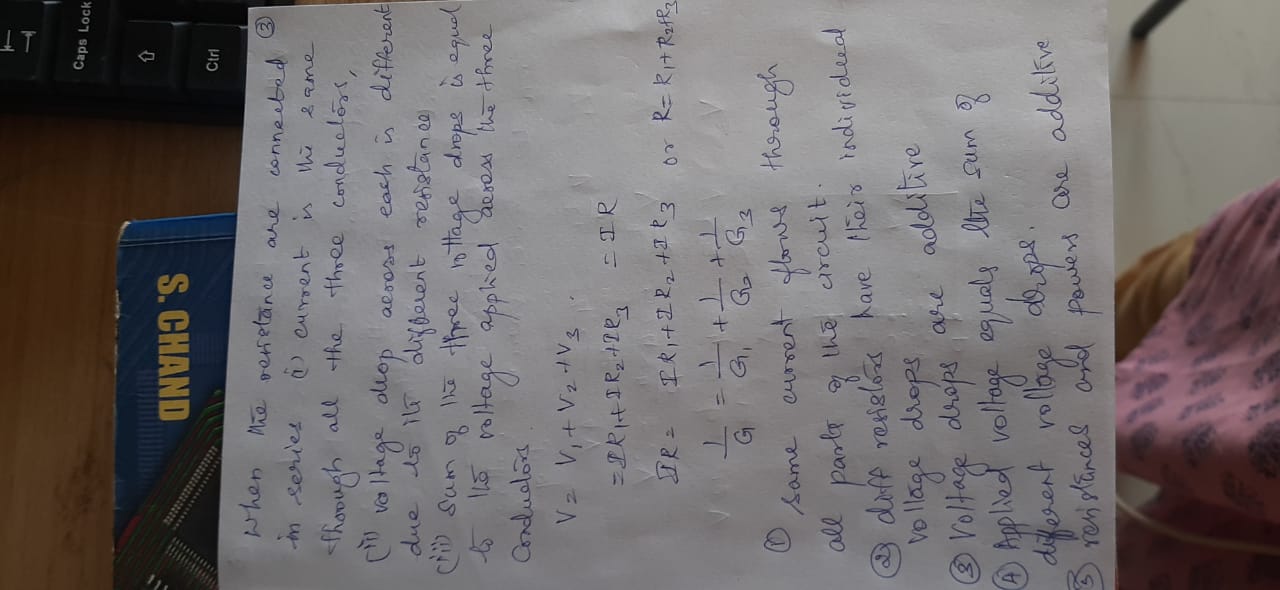 ③
When the resistance are connected
in series (i) current is the same
through all the three conductors,
(ii) voltage drop across each is different
due to its different resistance
(iii) Sum of the three voltage drops is equal
to the voltage applied across the three
Conductors.
V = V1 + V2 + V3.
= IR1 + IR2 + IR3 = IR
IR = IR1 + IR2 + IR3 or R = R1 + R2 + R3
1/G = 1/G1 + 1/G2 + 1/G3
① same current flows through
all parts of the circuit.
② diff resistors have their individual
voltage drops
③ Voltage drops are additive
④ Applied voltage equals the sum of
different voltage drops.
⑤ resistances and powers are additive
S. CHAND
Caps Lock
Ctrl